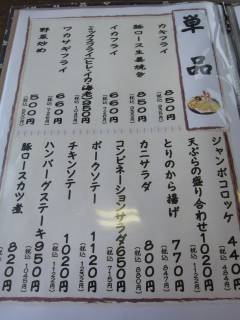 単品
カキフライ 850円
豚ロース生姜焼き 850円
イカフライ 660円
ミックスフライ(ヒレ,イカ,海老) 950円
ワカサギフライ 660円
野菜炒め 500円
ジャンボコロッケ 440円
天ぷらの盛り合わせ 1020円
とりのから揚げ 770円
カニサラダ 800円
コンビネーションサラダ 650円
ポークソテー 1120円
チキンソテー 1020円
ハンバーグステーキ 950円
豚ロースカツ煮